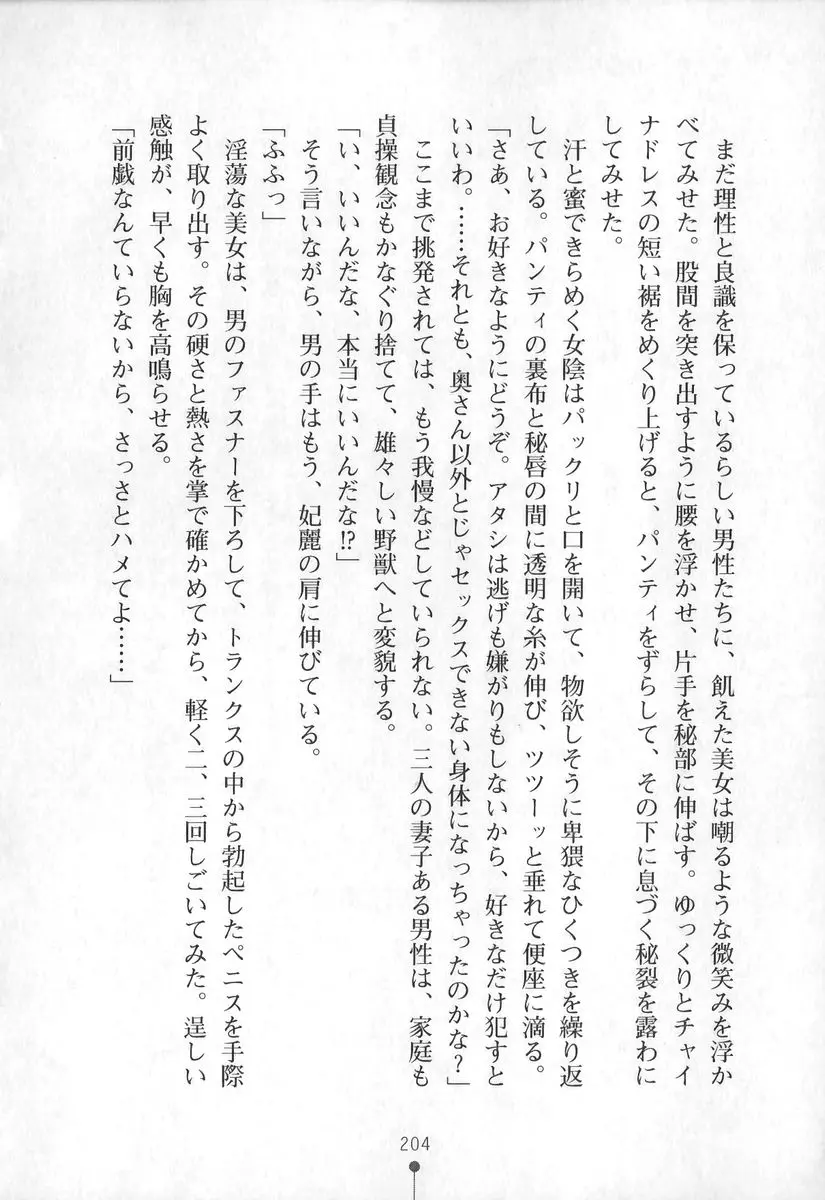 まだ理性と良識を保っているらしい男性たちに、飢えた美女は嘲るような微笑みを浮か
べてみせた。股間を突き出すように腰を浮かせ、片手を秘部に伸ばす。ゆっくりとチャイ
ナドレスの短い裾をめくり上げると、パンティをずらして、その下に息づく秘裂を露わに
してみせた。
　汗と蜜できらめく女陰はパックリと口を開いて、物欲しそうに卑猥なひくつきを繰り返
している。パンティの裏布と秘唇の間に透明な糸が伸び、ツツーッと垂れて便座に滴る。
「さあ、お好きなようにどうぞ。アタシは逃げも嫌がりもしないから、好きなだけ犯すと
いいわ。……それとも、奥さん以外とじゃセックスできない身体になっちゃったのかな？」
　ここまで挑発されては、もう我慢などしていられない。三人の妻子ある男性は、家庭も
貞操観念もかなぐり捨てて、雄々しい野獣へと変貌する。
「い、いいんだな、本当にいいんだな!?」
　そう言いながら、男の手はもう、妃麗の肩に伸びている。
「ふふっ」
　淫蕩な美女は、男のファスナーを下ろして、トランクスの中から勃起したペニスを手際
よく取り出す。その硬さと熱さを掌で確かめてから、軽く二、三回しごいてみた。逞しい
感触が、早くも胸を高鳴らせる。
「前戯なんていらないから、さっさとハメてよ……」
204